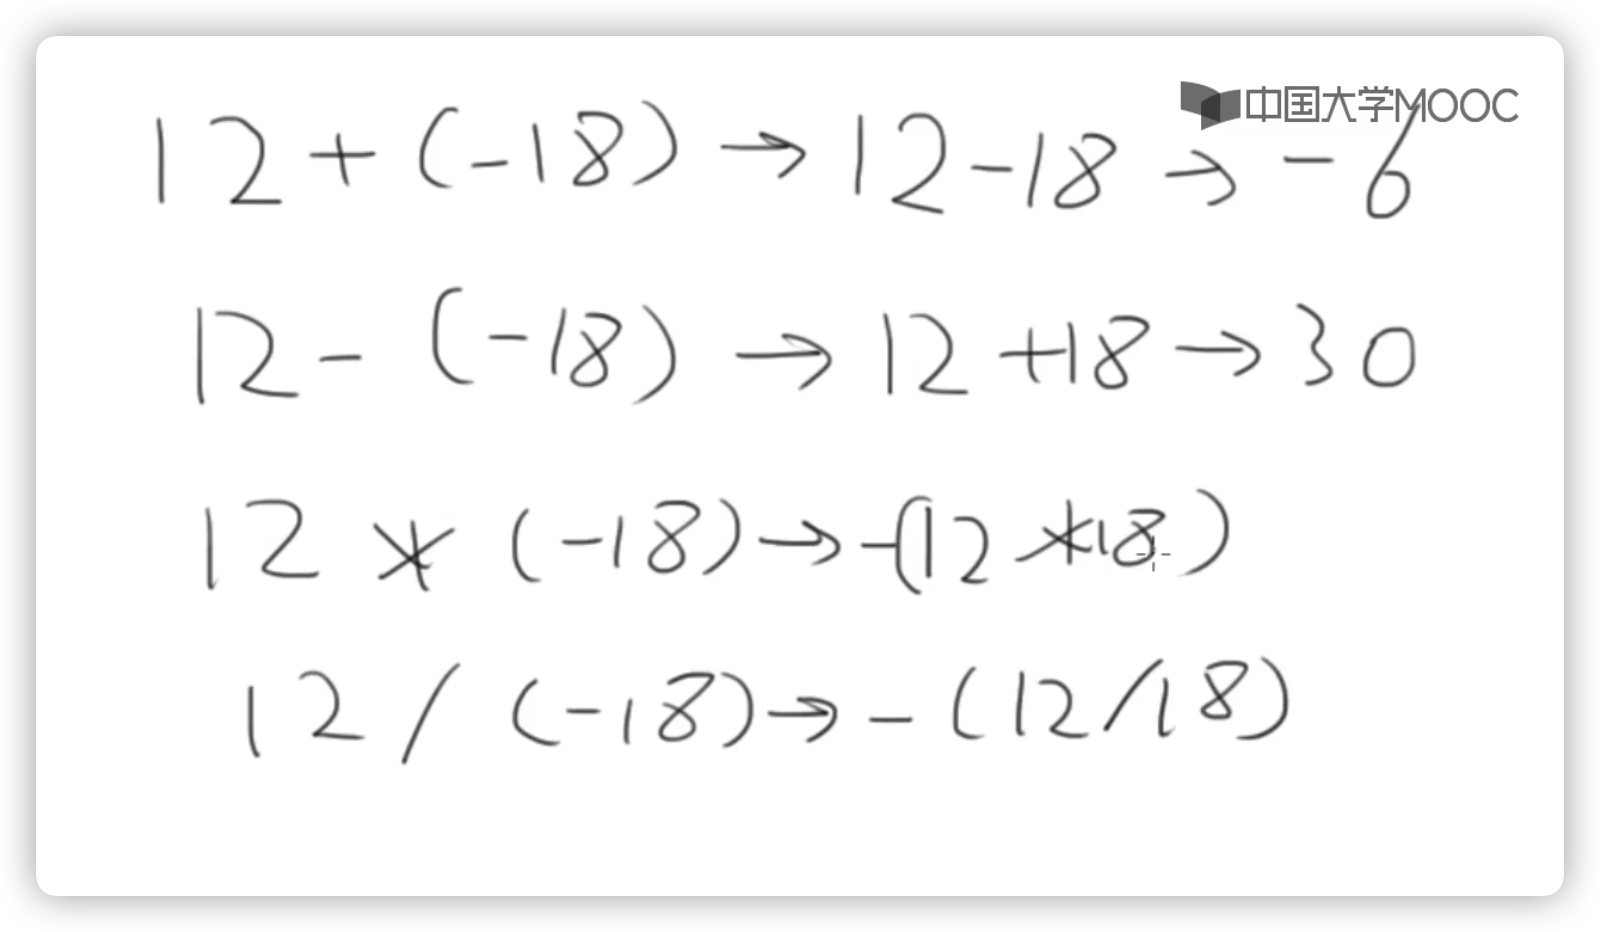 中国大学MOOC
12+(-18)→12-18→-6
12-(-18)→12+18→30
12*(-18)→-(12*18)
12/(-18)→-(12/18)